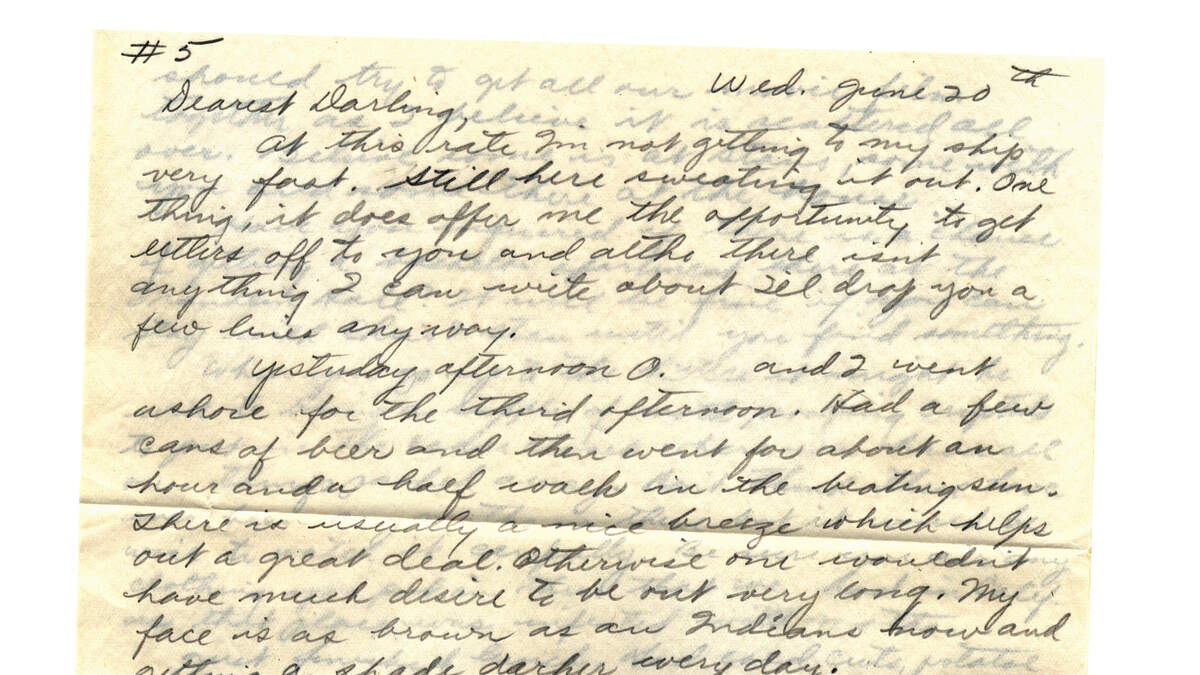 #5
Wed. June 20th
Dearest Darling,
At this rate Im not getting to my ship
very fast. Still here sweating it out. One
thing, it does offer me the opportunity to get
letters off to you and altho there isnt
anything I can write about I'll drop you a
few lines anyway.
Yesterday afternoon O. and I went
ashore for the third afternoon. Had a few
cans of beer and then went for about an
hour and a half walk in the beating sun.
There is usually a nice breeze which helps
out a great deal. Otherwise one wouldn't
have much desire to be out very long. My
face is as brown as an Indians now and
getting a shade darker every day.